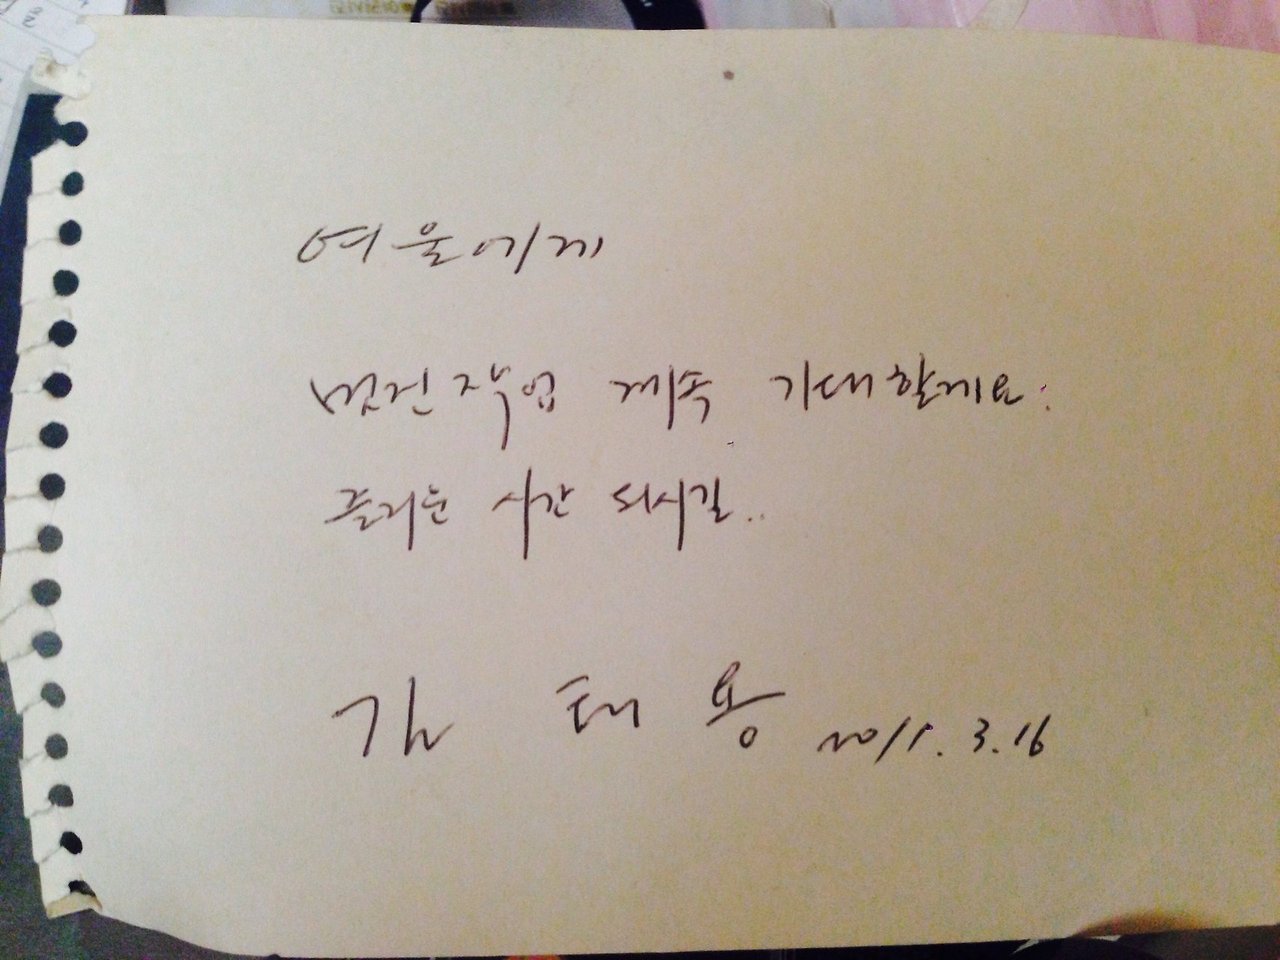 여울에게
멋진 작업 계속 기대할게요.
즐거운 시간 되시길..
김 태 용 2011. 3. 16